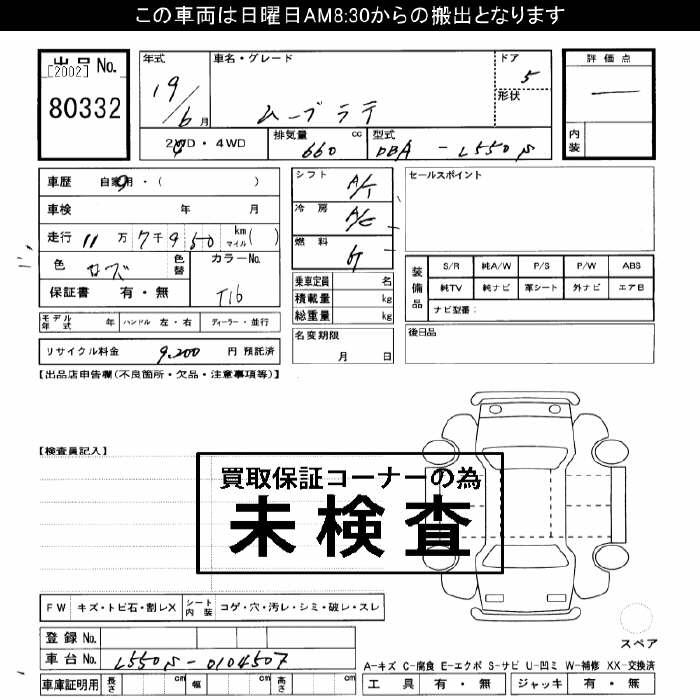 この車両は日曜日AM8:30からの搬出となります
出品 No.
[2002]
80332
年式
19/6 月
車名・グレード
ムーブラテ
ドア
5
形状
評価点
―
内装
2WD・4WD
排気量 cc
660
型式
DBA - L550S
車歴 自家用・( )
車検 年 月
走行 11万7千950 km マイル( )
色
ローズ
色替
カラーNo.
T16
保証書 有・無
シフト
A/T
冷房
A/C
燃料
G
乗車定員 名
積載量 kg
総重量 kg
セールスポイント
装備品
S/R 純A/W P/S P/W ABS
純TV 純ナビ 革シート 外ナビ エアB
ナビ型番：
モデル年式 年 ハンドル 左・右 ディーラー・並行
リサイクル料金 9,200 円 預託済
名変期限
月 日
後日品
【出品店申告欄(不良箇所・欠品・注意事項等)】
【検査員記入】
買取保証コーナーの為
未検査
FW キズ・トビ石・割レX シート内装 コゲ・穴・汚レ・シミ・破レ・スレ
スペア
登録 No.
車台 No. L550S-0104507
A-キズ C-腐食 E-エクボ S-サビ U-凹ミ W-補修 XX-交換済
車庫証明用 長さ cm 幅 cm 高さ cm
工具 有・無 ジャッキ 有・無